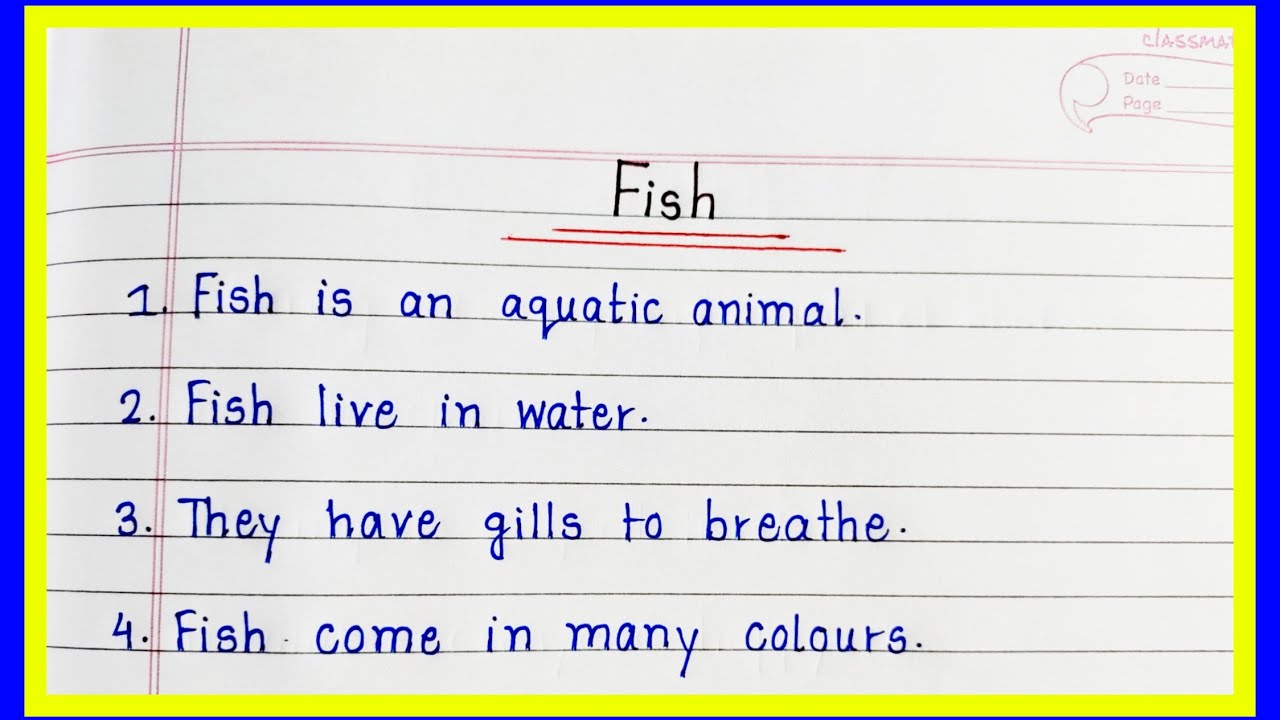 CLASSMAT
Date
Page
Fish
1. Fish is an aquatic animal.
2. Fish live in water.
3. They have gills to breathe.
4. Fish come in many colours.